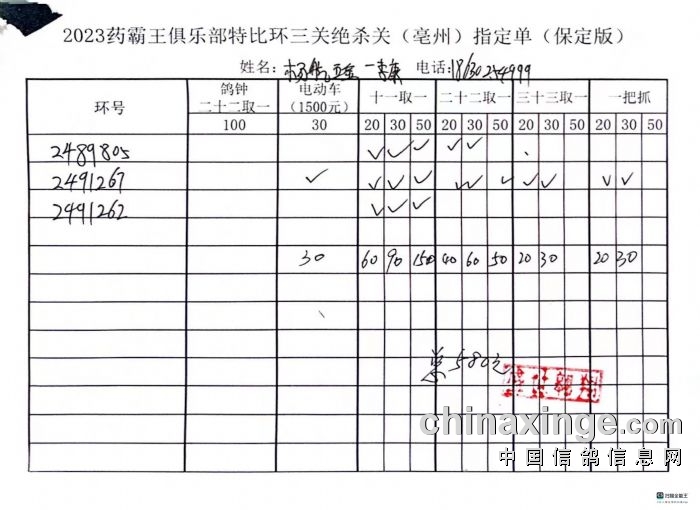 2023药霸王俱乐部特比环三关绝杀关（亳州）指定单（保定版）
姓名： 电话：
环号 鸽钟 二十二取一 电动车 （1500元） 十一取一 二十二取一 三十三取一 一把抓
100 30 20 30 50 20 30 50 20 30 50 20 30 50
2489805 ✓ ✓ ✓ ✓ ✓
2491267 ✓ ✓ ✓ ✓ ✓ ✓ ✓ ✓ ✓ ✓ ✓
2491262 ✓ ✓ ✓
30 60 90 150 40 60 50 20 30 20 30
总580元
chinaxinge.com
中国信鸽信息网
扫描全能王